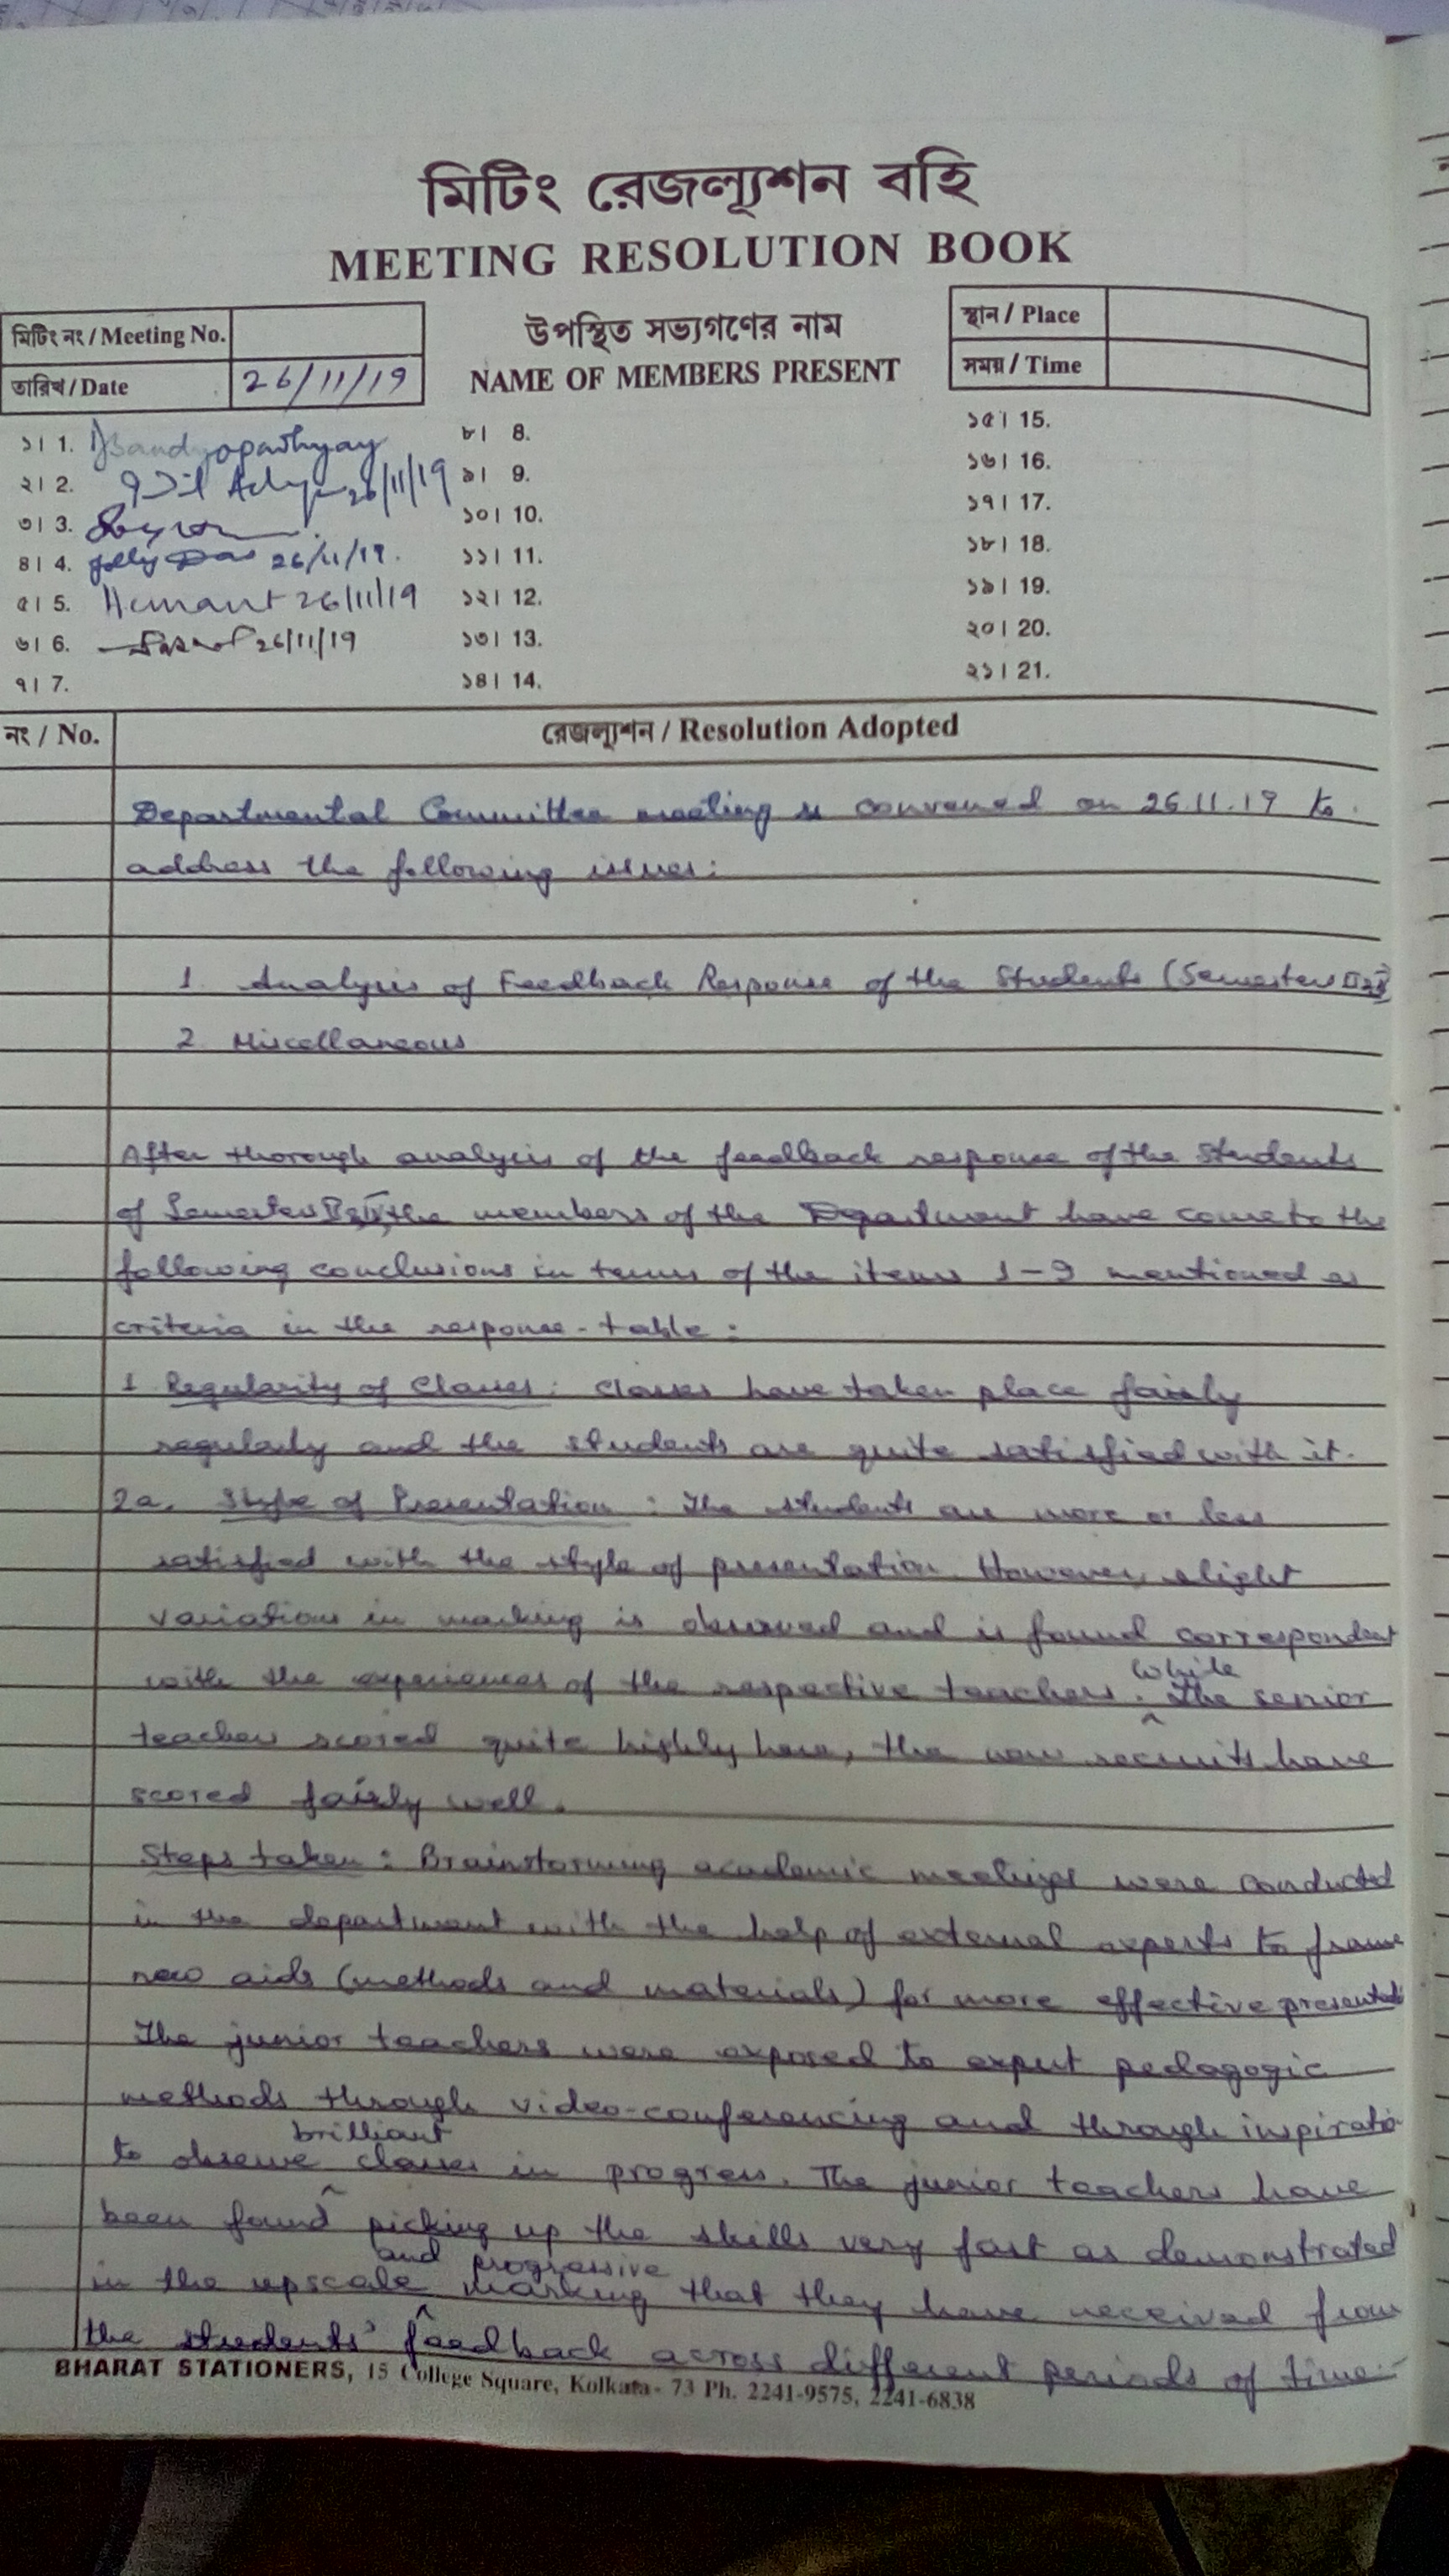 মিটিং রেজল্যূশন বহি
MEETING RESOLUTION BOOK
মিটিং নং / Meeting No.
তারিখ / Date 26/11/19
উপস্থিত সভ্যগণের নাম
NAME OF MEMBERS PRESENT
স্থান / Place
সময় / Time
১। 1. Bandyopadhyay
২। 2. 26/11/19
৩। 3.
৪। 4. Jolly Das 26/11/19.
৫। 5. Hemant 26/11/19
৬। 6. 26/11/19
৭। 7.
৮। 8.
৯। 9.
১০। 10.
১১। 11.
১২। 12.
১৩। 13.
১৪। 14.
১৫। 15.
১৬। 16.
১৭। 17.
১৮। 18.
১৯। 19.
২০। 20.
২১। 21.
নং / No.
রেজল্যূশন / Resolution Adopted
Departmental Committee meeting is convened on 26.11.19 to
address the following issues:
1. Analysis of Feedback Response of the Students (Semesters
2. Miscellaneous
After thorough analysis of the feedback response of the Students
of Semester the members of the Department have come to the
following conclusions in terms of the items 1-9 mentioned as
criteria in the response-table:
1 Regularity of Classes: Classes have taken place fairly
regularly and the students are quite satisfied with it.
2a. Style of Presentation: The students are more or less
satisfied with the style of presentation. However, slight
variations in marking is observed and is found correspondent
with the experiences of the respective teachers. While The senior
teachers scored quite highly here, the new recruits have
scored fairly well.
Steps taken: Brainstorming academic meetings were conducted
in the department with the help of external experts to frame
new aids (methods and materials) for more effective presentati
The junior teachers were exposed to expert pedagogic
methods through video-conferencing and through inspiratio
to observe brilliant classes in progress. The junior teachers have
been found picking up the skills very fast as demonstrated
in the upscale and progressive marking that they have received from
the students' feedback across different periods of time.
BHARAT STATIONERS, 15 College Square, Kolkata- 73 Ph. 2241-9575, 2241-6838